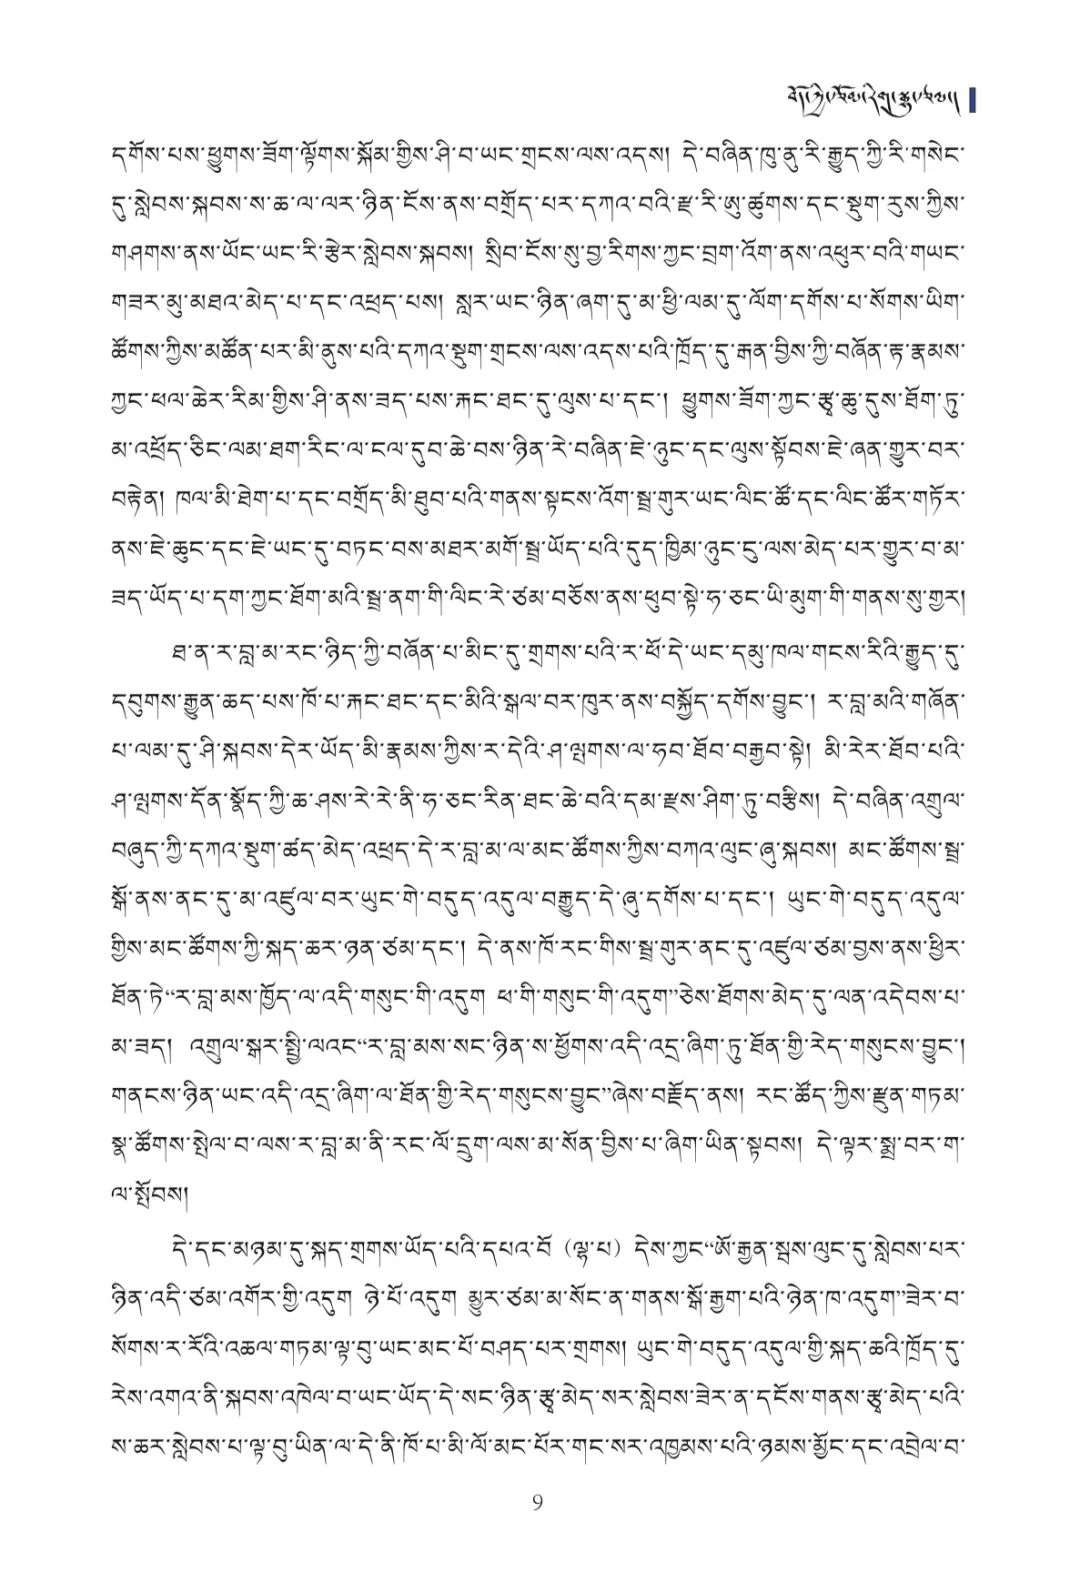 དགོས་པས་ཕྱུགས་ཟོག་ལྟོགས་སྐོམ་གྱིས་ཤི་བ་ཡང་གྲངས་ལས་འདས། དེ་བཞིན་ཁུ་ནུ་རི་རྒྱུད་ཀྱི་རི་གསེང་
དུ་སླེབས་སྐབས་ས་ཆ་ལ་ལར་ཉིན་ངོས་ནས་བགྲོད་པར་དཀའ་བའི་རྫ་རི་ཨུ་ཚུགས་དང་སྡུག་རུས་ཀྱིས་
གཤགས་ནས་ཡོང་ཡང་རི་རྩེར་སླེབས་སྐབས། སྲིབ་ངོས་སུ་བྱ་རིགས་ཀྱང་བྲག་འོག་ནས་འཕུར་བའི་གཡང་
གཟར་མུ་མཐའ་མེད་པ་དང་འཕྲད་པས། སླར་ཡང་ཉིན་ཞག་དུ་མ་ཕྱི་ལམ་དུ་ལོག་དགོས་པ་སོགས་ཡིག་
ཚོགས་ཀྱིས་མཚོན་པར་མི་ནུས་པའི་དཀའ་སྡུག་གྲངས་ལས་འདས་པའི་ཁྲོད་དུ་རྒན་བྱིས་ཀྱི་བཞོན་རྟ་རྣམས་
ཀྱང་ཕལ་ཆེར་རིམ་གྱིས་ཤི་ནས་ཟད་པས་རྐང་ཐང་དུ་ལུས་པ་དང༌། ཕྱུགས་ཟོག་ཀྱང་རྩྭ་ཆུ་དུས་ཐོག་ཏུ་
མ་འཕྲོད་ཅིང་ལམ་ཐག་རིང་ལ་ངལ་དུབ་ཆེ་བས་ཉིན་རེ་བཞིན་ཇེ་ཉུང་དང་ལུས་སྟོབས་ཇེ་ཞན་གྱུར་བར་
བརྟེན། ཁལ་མི་ཐེག་པ་དང་བགྲོད་མི་ཐུབ་པའི་གནས་སྟངས་འོག་སྦྲ་གུར་ཡང་ལིང་ཚོ་དང་ལིང་ཚོར་གཏོར་
ནས་ཇེ་ཆུང་དང་ཇེ་ཡང་དུ་བཏང་བས་མཐར་མགོ་སྦྲ་ཡོད་པའི་དུད་ཁྱིམ་ཉུང་ངུ་ལས་མེད་པར་གྱུར་བ་མ་
ཟད་ཡོད་པ་དག་ཀྱང་ཐོག་མའི་སྦྲ་ནག་གི་ལིང་རེ་ཙམ་བཅོས་ནས་ཕུབ་སྟེ་ཧ་ཅང་ཡི་མུག་གི་གནས་སུ་གྱར།
ཐ་ན་ར་བླ་མ་རང་ཉིད་ཀྱི་བཞོན་པ་མིང་དུ་གྲགས་པའི་ར་ཕོ་དེ་ཡང་དམུ་ཁལ་གངས་རིའི་རྒྱུད་དུ་
དབུགས་རྒྱུན་ཆད་པས་ཁོ་པ་རྐང་ཐང་དང་མིའི་སྒལ་བར་ཁུར་ནས་བསྐྱོད་དགོས་བྱུང༌། ར་བླ་མའི་གཞོན་
པ་ལམ་དུ་ཤི་སྐབས་དེར་ཡོད་མི་རྣམས་ཀྱིས་ར་དེའི་ཤ་ལྤགས་ལ་ཧབ་ཐོབ་བརྒྱབ་སྟེ། མི་རེར་ཐོབ་པའི་
ཤ་ལྤགས་དོན་སྣོད་ཀྱི་ཆ་ཤས་རེ་རེ་ནི་ཧ་ཅང་རིན་ཐང་ཆེ་བའི་དམ་རྫས་ཤིག་ཏུ་བརྩིས། དེ་བཞིན་འགྲུལ་
བཞུད་ཀྱི་དཀའ་སྡུག་ཚད་མེད་འཕྲད་དེ་ར་བླ་མ་ལ་མང་ཚོགས་ཀྱིས་བཀའ་ལུང་ཞུ་སྐབས། མང་ཚོགས་སྦྲ་
སྒོ་ནས་ནང་དུ་མ་འཛུལ་བར་ཡུང་གེ་བདུད་འདུལ་བརྒྱུད་དེ་ཞུ་དགོས་པ་དང༌། ཡུང་གེ་བདུད་འདུལ་
གྱིས་མང་ཚོགས་ཀྱི་སྐད་ཆར་ཉན་ཙམ་དང༌། དེ་ནས་ཁོ་རང་གིས་སྦྲ་གུར་ནང་དུ་འཛུལ་ཙམ་བྱས་ནས་ཕྱིར་
ཐོན་ཏེ“ར་བླ་མས་ཁྱོད་ལ་འདི་གསུང་གི་འདུག ཕ་གི་གསུང་གི་འདུག”ཅེས་ཐོགས་མེད་དུ་ལན་འདེབས་པ་
མ་ཟད། འགྲུལ་སྒར་སྤྱི་ལའང“ར་བླ་མས་སང་ཉིན་ས་ཕྱོགས་འདི་འདྲ་ཞིག་ཏུ་ཐོན་གྱི་རེད་གསུངས་བྱུང༌།
གནངས་ཉིན་ཡང་འདི་འདྲ་ཞིག་ལ་ཐོན་གྱི་རེད་གསུངས་བྱུང”ཞེས་བརྗོད་ནས། རང་ཚོད་ཀྱིས་རྫུན་གཏམ་
སྣ་ཚོགས་སྤེལ་བ་ལས་ར་བླ་མ་ནི་རང་ལོ་དྲུག་ལས་མ་སོན་བྱིས་པ་ཞིག་ཡིན་སྟབས། དེ་ལྟར་སྨྲ་བར་ག་
ལ་སྤོབས།
དེ་དང་མཉམ་དུ་སྐད་གྲགས་ཡོད་པའི་དཔའ་བོ (ལྷ་པ) དེས་ཀྱང“ཨོ་རྒྱན་སྦས་ལུང་དུ་སླེབས་པར་
ཉིན་འདི་ཙམ་འགོར་གྱི་འདུག ཉེ་པོ་འདུག མྱུར་ཙམ་མ་སོང་ན་གནས་སྒོ་རྒྱག་པའི་ཉེན་ཁ་འདུག”ཟེར་བ་
སོགས་ར་རོའི་འཆལ་གཏམ་ལྟ་བུ་ཡང་མང་པོ་བཤད་པར་གྲགས། ཡུང་གེ་བདུད་འདུལ་གྱི་སྐད་ཆའི་ཁྲོད་དུ་
རེས་འགའ་ནི་སྐབས་འཁེལ་བ་ཡང་ཡོད་དེ་སང་ཉིན་རྩྭ་མེད་སར་སླེབས་ཟེར་ན་དངོས་གནས་རྩྭ་མེད་པའི་
ས་ཆར་སླེབས་པ་ལྟ་བུ་ཡིན་ལ་དེ་ནི་ཁོ་པ་མི་ལོ་མང་པོར་གང་སར་འཁྱམས་པའི་ཉམས་མྱོང་དང་འབྲེལ་བ་
9